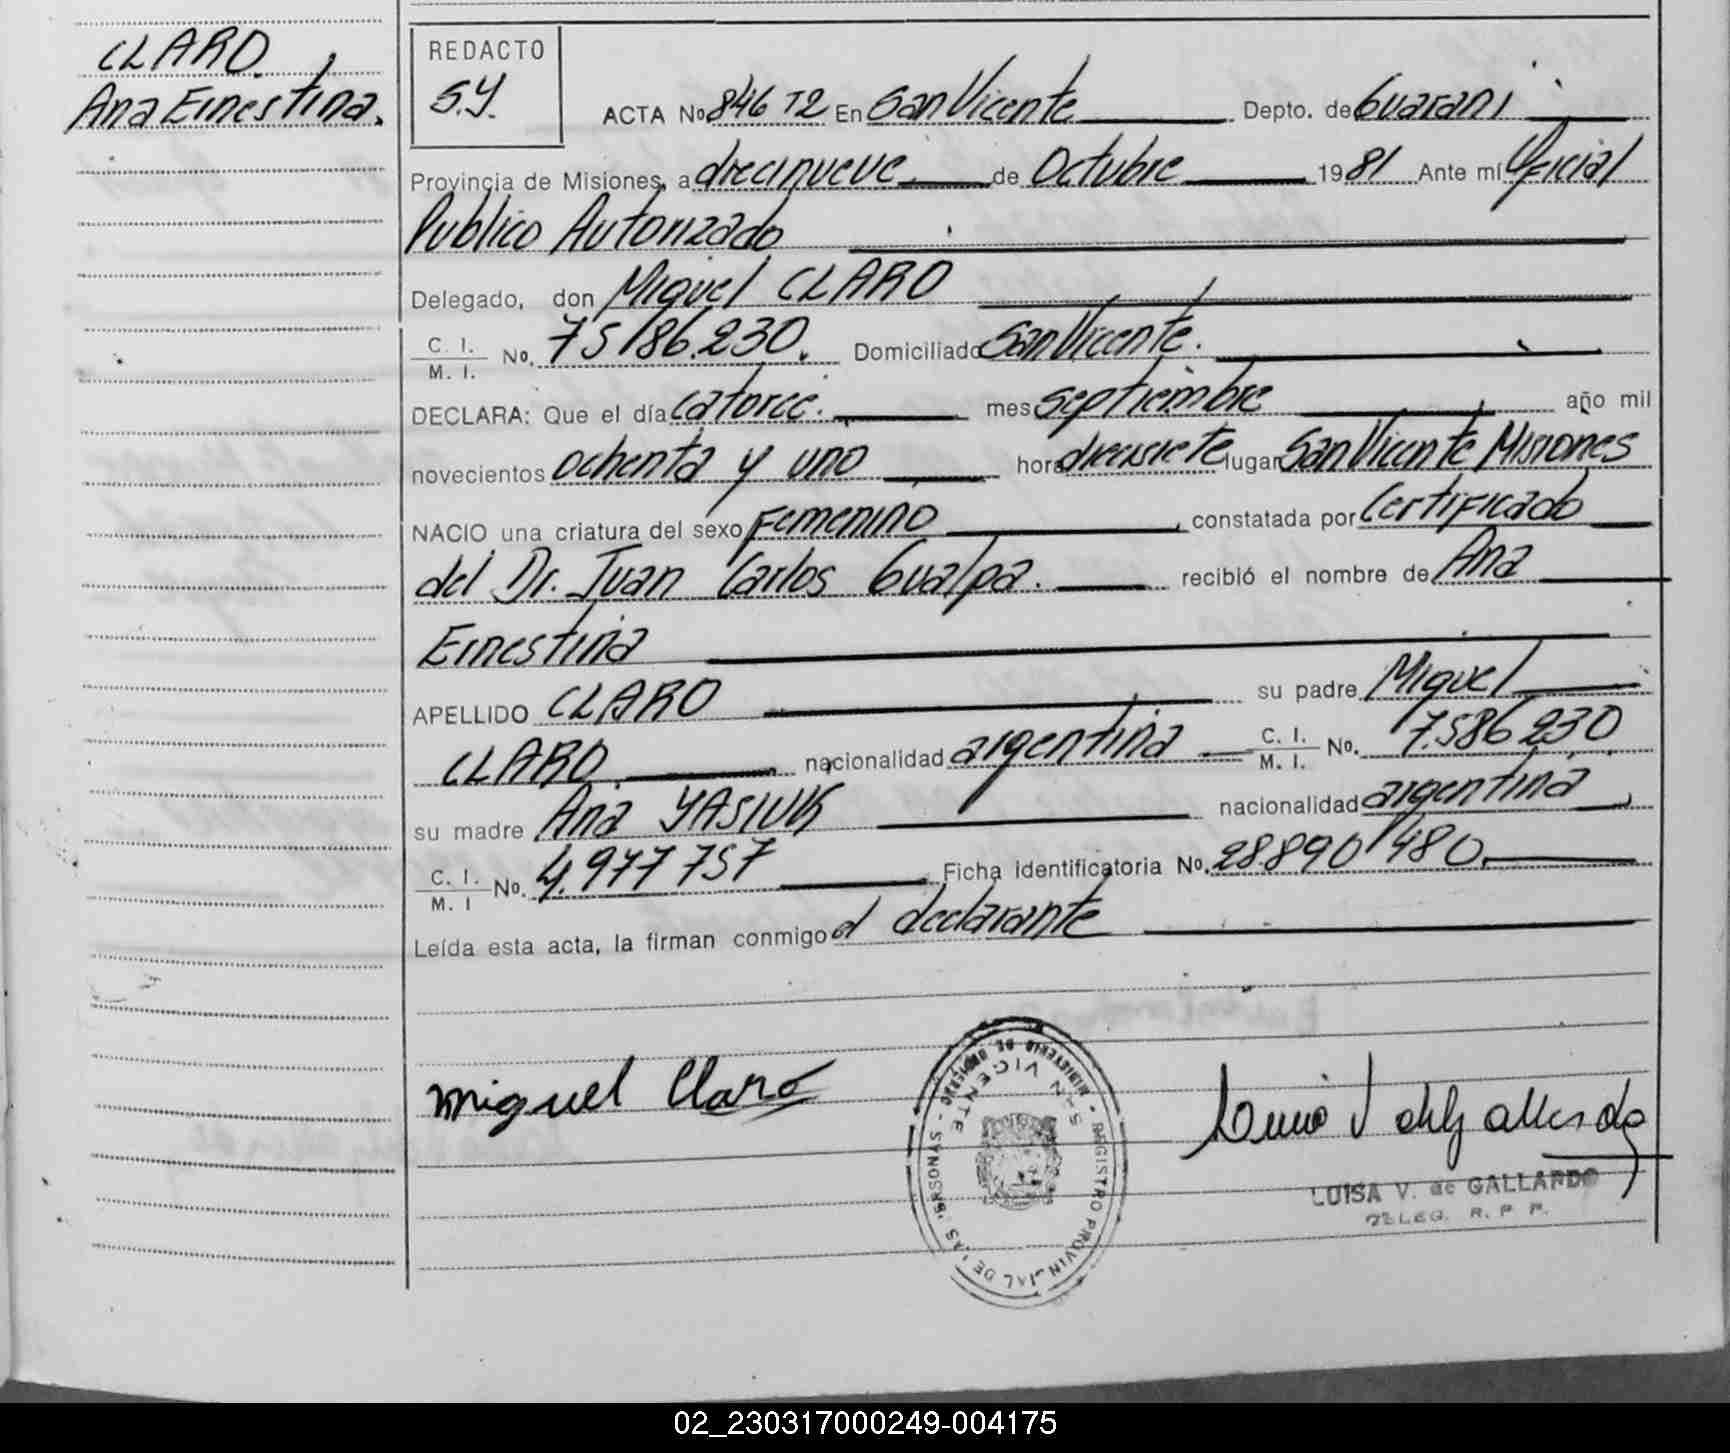 CLARO
Ana Ernestina.
REDACTO
S.Y.
ACTA No 846 T2 En San Vicente Depto. de Guarani
Provincia de Misiones, a diecinueve de Octubre 1981 Ante mí Oficial
Publico Autorizado
Delegado, don Miguel CLARO
C. I. M. I. No. 7586.230. Domiciliado San Vicente.
DECLARA: Que el día catorce. mes septiembre año mil
novecientos ochenta y uno hora diecisiete lugar San Vicente Misiones
NACIO una criatura del sexo Femenino constatada por Certificado
del Dr. Juan Carlos Gualpa. recibió el nombre de Ana
Ernestina
APELLIDO CLARO su padre Miguel
CLARO nacionalidad argentina C. I. M. I. No. 7.586230
su madre Ana YASIUK nacionalidad argentina
C. I. M. I No. 4.977757 Ficha identificatoria No. 28890480
Leída esta acta, la firman conmigo el declarante
Miguel Claro
MINISTERIO DE GOBIERNO - REGISTRO PROVINCIAL DE LAS PERSONAS -
SAN VICENTE
LUISA V. de GALLARDO
DELEG. R. P. P.
02_230317000249-004175